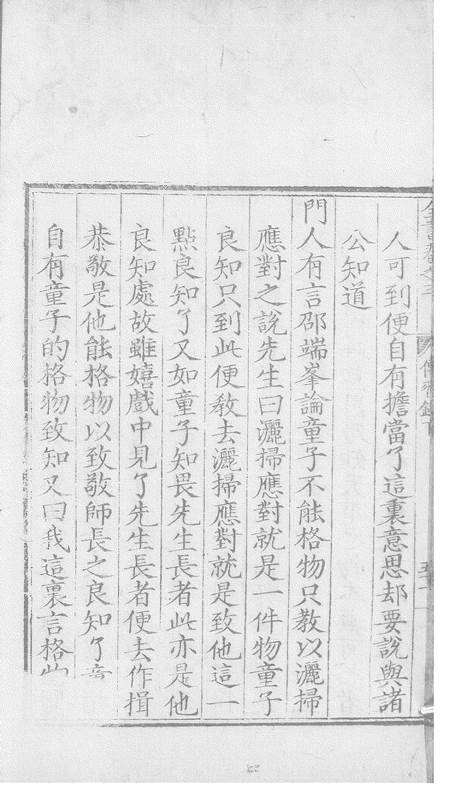 人可到便自有擔當了這裏意思却要說與諸
公知道
門人有言邵端峯論童子不能格物只教以灑掃
應對之說先生曰灑掃應對就是一件物童子
良知只到此便教去灑掃應對就是致他這一
點良知了又如童子知畏先生長者此亦是他
良知處故雖嬉戲中見了先生長者便去作揖
恭敬是他能格物以致敬師長之良知了
自有童子的格物致知又曰我這裏言格